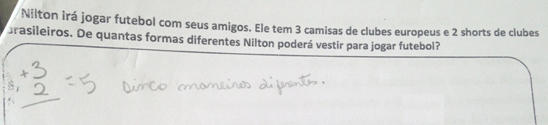 Nilton irá jogar futebol com seus amigos. Ele tem 3 camisas de clubes europeus e 2 shorts de clubes
brasileiros. De quantas formas diferentes Nilton poderá vestir para jogar futebol?
+3
2 = 5 cinco maneiras diferentes.